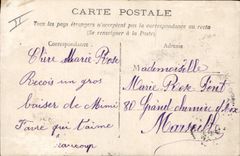 CARTE POSTALE
Tous les pays étrangers n'acceptent pas la correspondance au recto
(Se renseigner à la Poste)
Correspondance
Adresse
Chère Marie Rose
Reçois un gros
baiser de Mimi
qui t'aime
beaucoup
Mademoiselle
Marie Rose
80 Grand chemin d'Aix
Marseille